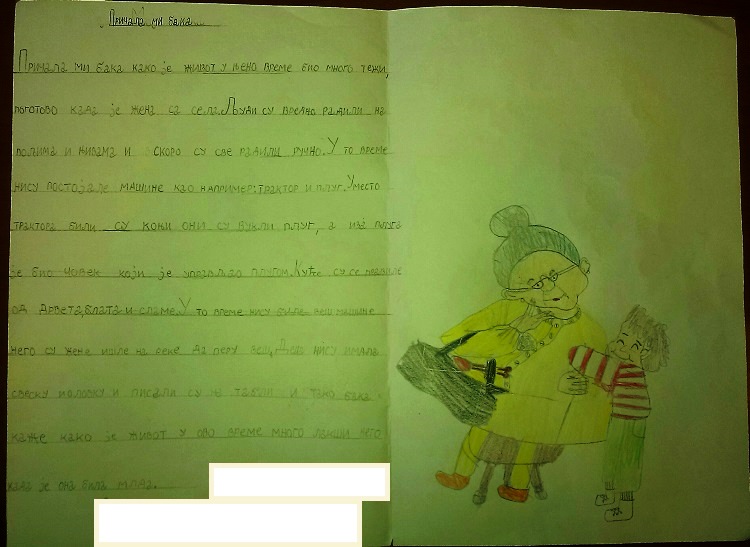 Причала ми бака...
Причала ми бака како је живот у њено време био много тежи,
поготово када је жена са села. Људи су вредно радили на
пољима и њивама и скоро су све радили ручно. У то време
нису постојале машине као например: трактор и плуг. Уместо
трактора били су коњи они су вукли плуг, а иза плуга
је био човек који је управљао плугом. Куће су се правиле
од дрвета, блата и сламе. У то време нису биле веш машине
него су жене ишле на реке да перу веш. Деца нису имала
свеску и оловку и писали су на табли и тако бака
каже како је живот у ово време много лакши него
када је она била млада.